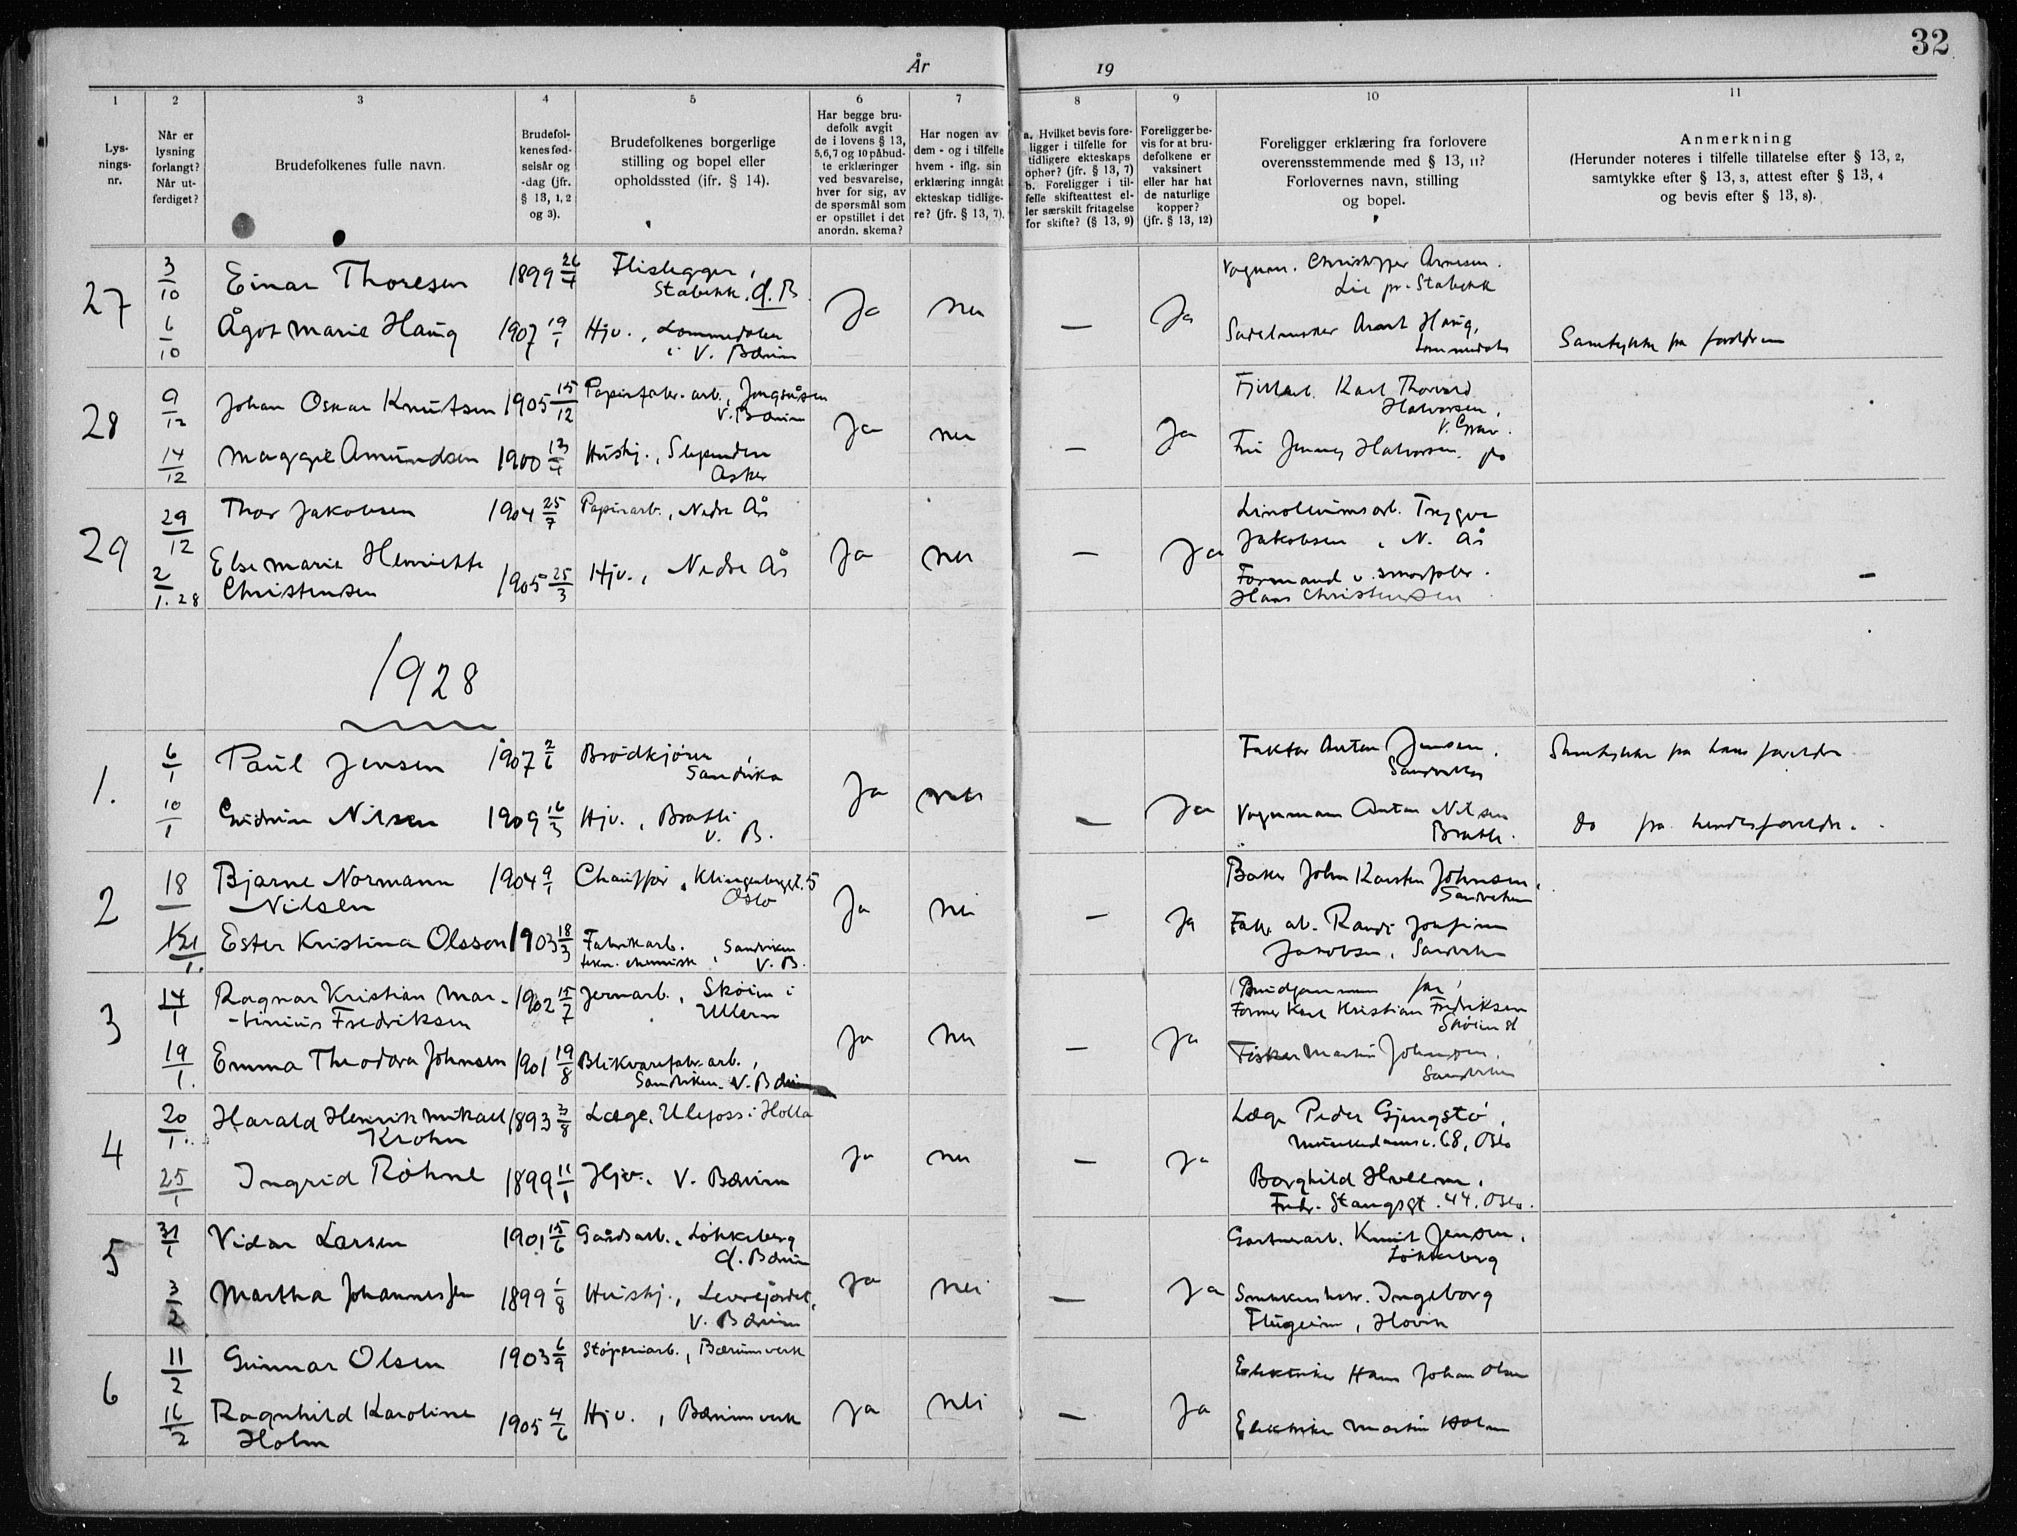 32
År 19
1 2 3 4 5 6 7 8 9 10 11
Lys-
nings-
nr.
Når er
lysning
forlangt?
Når ut-
ferdiget?
Brudefolkenes fulle navn.
Brudefol-
kenes fød-
selsår og
-dag (jfr.
§ 13, 1, 2
og 3).
Brudefolkenes borgerlige
stilling og bopel eller
opholdssted (ifr. § 14).
Har begge bru-
defolk avgit
de i lovens § 13,
5, 6, 7 og 10 påbud-
te erklæringer
ved besvarelse,
hver for sig, av
de spørsmål som
er opstillet i det
anordn. skema?
Har nogen av
dem - og i tilfelle
hvem - iflg. sin
erklæring inngåt
ekteskap tidlige-
re? (jfr. § 13, 7).
a. Hvilket bevis fore-
ligger i tilfelle for
tidligere ekteskaps
ophør? (jfr. § 13, 7)
b. Foreligger i til-
felle skifteattest el-
ler særskilt fritagelse
for skifte? (§ 13, 9)
Foreligger be-
vis for at bru-
defolkene er
vaksinert
eller har hat
de naturlige
kopper?
(jfr. § 13, 12)
Foreligger erklæring fra forlovere
overensstemmende med § 13, 11?
Forlovernes navn, stilling
og bopel.
Anmerkning
(Herunder noteres i tilfelle tillatelse efter § 13, 2,
samtykke efter § 13, 3, attest efter § 13, 4
og bevis efter § 13, 8).
27
3/10 Einar Thoresen 1899 26/4 Flislegger,
Stabekk, Ø. B
Ja nei — Ja
Christopher Arnesen.
Lie pr. Stabekk
6/10 Ågot Marie Haug 1907 19/1 Hjv., Lommedalen
i V. Bærum
Haug,
Lommedalen
Samtykke fra foreldrene
28
9/12 Johan Oskar Knutsen 1905 15/12 Papirfabr. arb., Jongsåsen
V. Bærum
Ja nei — Ja
Karl Thorvald
Halvorsen,
14/12 Maggie Amundsen 1900 13/4 Hushj., Slependen
Asker
Fru Jenny Halvorsen. do
29
29/12 Thor Jakobsen 1904 25/7 Papirarb., Nedre Ås
Ja nei — Ja
Linoleumsarb. Trygve
Jakobsen, N. Ås
2/1.28 Else Marie Henriette
Christensen 1905 25/3 Hjv., Nedre Ås
Formand v. smørfabr.
Hans Christensen
—
1928
1.
6/1 Paul Jensen 1907 2/6 Brødkjører,
Sandvika
Ja nei — Ja
Faktor Anton Jensen,
Sandvika
Samtykke fra hans foreldre
10/1 Gudrun Nilsen 1909 16/3 Hjv., Bratli
V. B.
Vognmann Anton Nilsen
Bratli.
do fra hendes foreldre.
2
18/ Bjarne Normann
Nilsen 1904 9/1 Chauffør, Klingenberggt. 5
Oslo
Ja nei — Ja
Baker John Karsten Johnsen,
Sandviken
21/1. Ester Kristina Olsson 1903 18/3 Fabrikarb.
tekn. chemisk, Sandviken
V. B.
Fabr. arb. Randi Josefine
Jakobsen, Sandviken
3
14/1 Ragnar Kristian Mar-
-tinius Fredriksen 1902 15/7 Jernarb., Skøien i
Ullern
Ja nei — Ja
Brudgommens far,
Former Karl Kristian Fredriksen
Skøien st
19/1. Emma Theodora Johnsen 1901 19/8 Blikvarefabr. arb.,
Sandviken. V. Bærum
Fisker Martin Johnsen,
Sandviken
4
20/1. Harald Henrik Mikael
Krohn 1893 3/8 Læge, Ulefoss i Holla
Ja nei — Ja
Læge Peder Gjengstø,
Munkedamsv. 68, Oslo
25/1 Ingrid Röhne 1899 11/1 Hjv., V. Bærum
Borghild
Fredr. Stangsgt. 44, Oslo.
5
31/1 Vidar Larsen 1901 15/6 Gårdsarb., Løkkeberg
Ø. Bærum
Ja nei — Ja
Gartnerarb. Knut Jensen,
Løkkeberg
3/2 Martha Johannessen 1899 1/8 Hushj., Levrejordet,
V. Bærum
Ingeborg
Flugeim, Hovik
6
11/2 Gunnar Olsen 1903 6/9 Støperiarb., Bærumsverk
Ja nei — Ja
Elektriker Hans Johan Olsen
16/2 Ragnhild Karoline
Holm 1905 4/6 Hjv., Bærumsverk
Elektriker Martin Holm